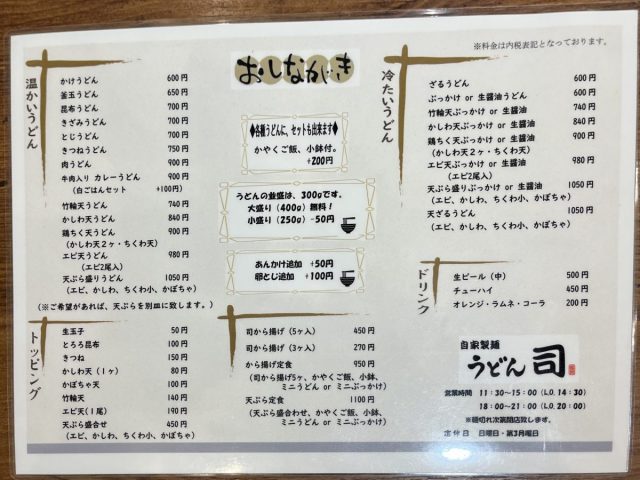 ※料金は内税表記となっております。
おしながき
温かいうどん
かけうどん 600円
釜玉うどん 650円
昆布うどん 700円
きざみうどん 700円
とじうどん 700円
きつねうどん 750円
肉うどん 900円
牛肉入り カレーうどん 900円
（白ごはんセット +100円）
竹輪天うどん 740円
かしわ天うどん 840円
鶏ちく天うどん 900円
（かしわ天２ヶ・ちくわ天）
エビ天うどん 980円
（エビ2尾入）
天ぷら盛りうどん 1050円
（エビ、かしわ、ちくわ小、かぼちゃ）
（※ご希望があれば、天ぷらを別皿に致します。）
◆各種うどんに、セットも出来ます◆
かやくご飯、小鉢付。
+200円
うどんの並盛は、300gです。
大盛り（400g）無料！
小盛り（250g）-50円
あんかけ追加 +50円
卵とじ追加 +100円
冷たいうどん
ざるうどん 600円
ぶっかけ or 生醤油うどん 600円
竹輪天ぶっかけ or 生醤油 740円
かしわ天ぶっかけ or 生醤油 840円
鶏ちく天ぶっかけ or 生醤油 900円
（かしわ天２ヶ・ちくわ天）
エビ天ぶっかけ or 生醤油 980円
（エビ2尾入）
天ぷら盛りぶっかけ or 生醤油 1050円
（エビ、かしわ、ちくわ小、かぼちゃ）
天ざるうどん 1050円
（エビ、かしわ、ちくわ小、かぼちゃ）
ドリンク
生ビール（中） 500円
チューハイ 450円
オレンジ・ラムネ・コーラ 200円
トッピング
生玉子 50円
とろろ昆布 100円
きつね 150円
かしわ天（１ヶ） 80円
かぼちゃ天 100円
竹輪天 140円
エビ天（１尾） 190円
天ぷら盛合せ 450円
（エビ、かしわ、ちくわ小、かぼちゃ）
司から揚げ（５ヶ入） 450円
司から揚げ（３ヶ入） 270円
から揚げ定食 950円
（司から揚げ5ヶ、かやくご飯、小鉢、
ミニうどん or ミニぶっかけ）
天ぷら定食 1100円
（天ぷら盛合わせ、かやくご飯、小鉢、
ミニうどん or ミニぶっかけ）
自家製麺
うどん 司
営業時間 11:30～15:00（L.O. 14:30）
18:00～21:00（L.O. 20:00）
※麺切れ次第閉店致します。
定休日 日曜日・第3月曜日